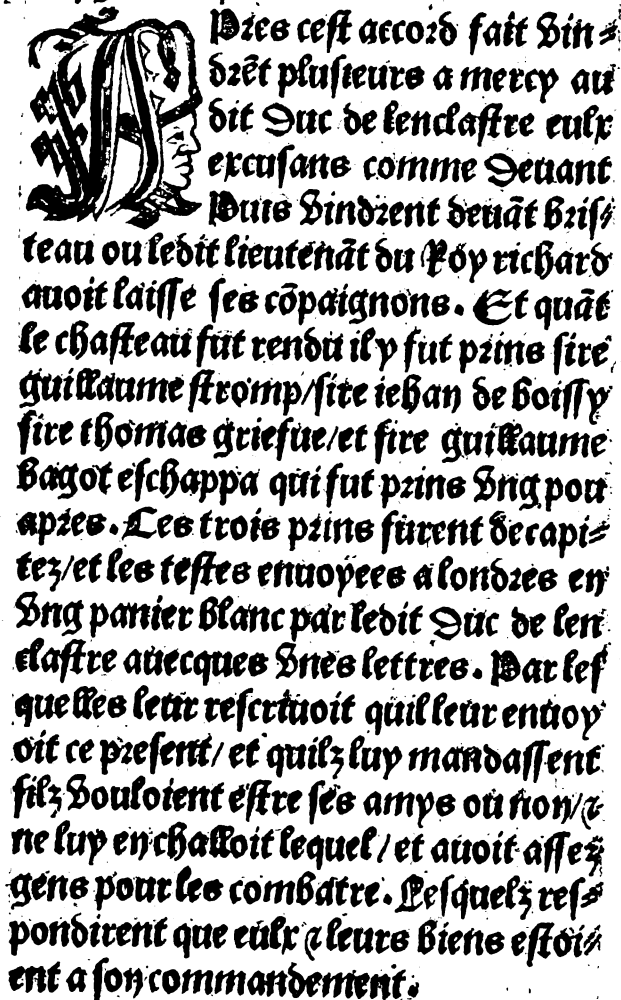 APres cest accord fait vin⸗
drẽt plusieurs a mercy au
dit Duc de lenclastre eulx
excusans comme Deuant
Puis vindrent deuãt bris⸗
teau ou ledit lieutenãt du Roy richard
auoit laisse ses cõpaignons. Et quãt
le chasteau fut rendu il y fut prins sire
guillaume stromp/sire iehan de boissy
sire thomas griefue/et sire guillaume
bagot eschappa qui fut prins vng pou
apres. Les trois prins furent decapi⸗
tez/et les testes enuoyees a londres en
vng panier blanc par ledit Duc de len
clastre auecques vnes lettres. Par les
quelles leur rescriuoit quil leur enuoy
oit ce present/ et quilz luy mandassent
silz vouloient estre ses amys ou non/⁊
ne luy en challoit lequel/et auoit assez
gens pour les combatre. Lesquelz res⸗
pondirent que eulx ⁊ leurs biens estoi⸗
ent a son commandement.